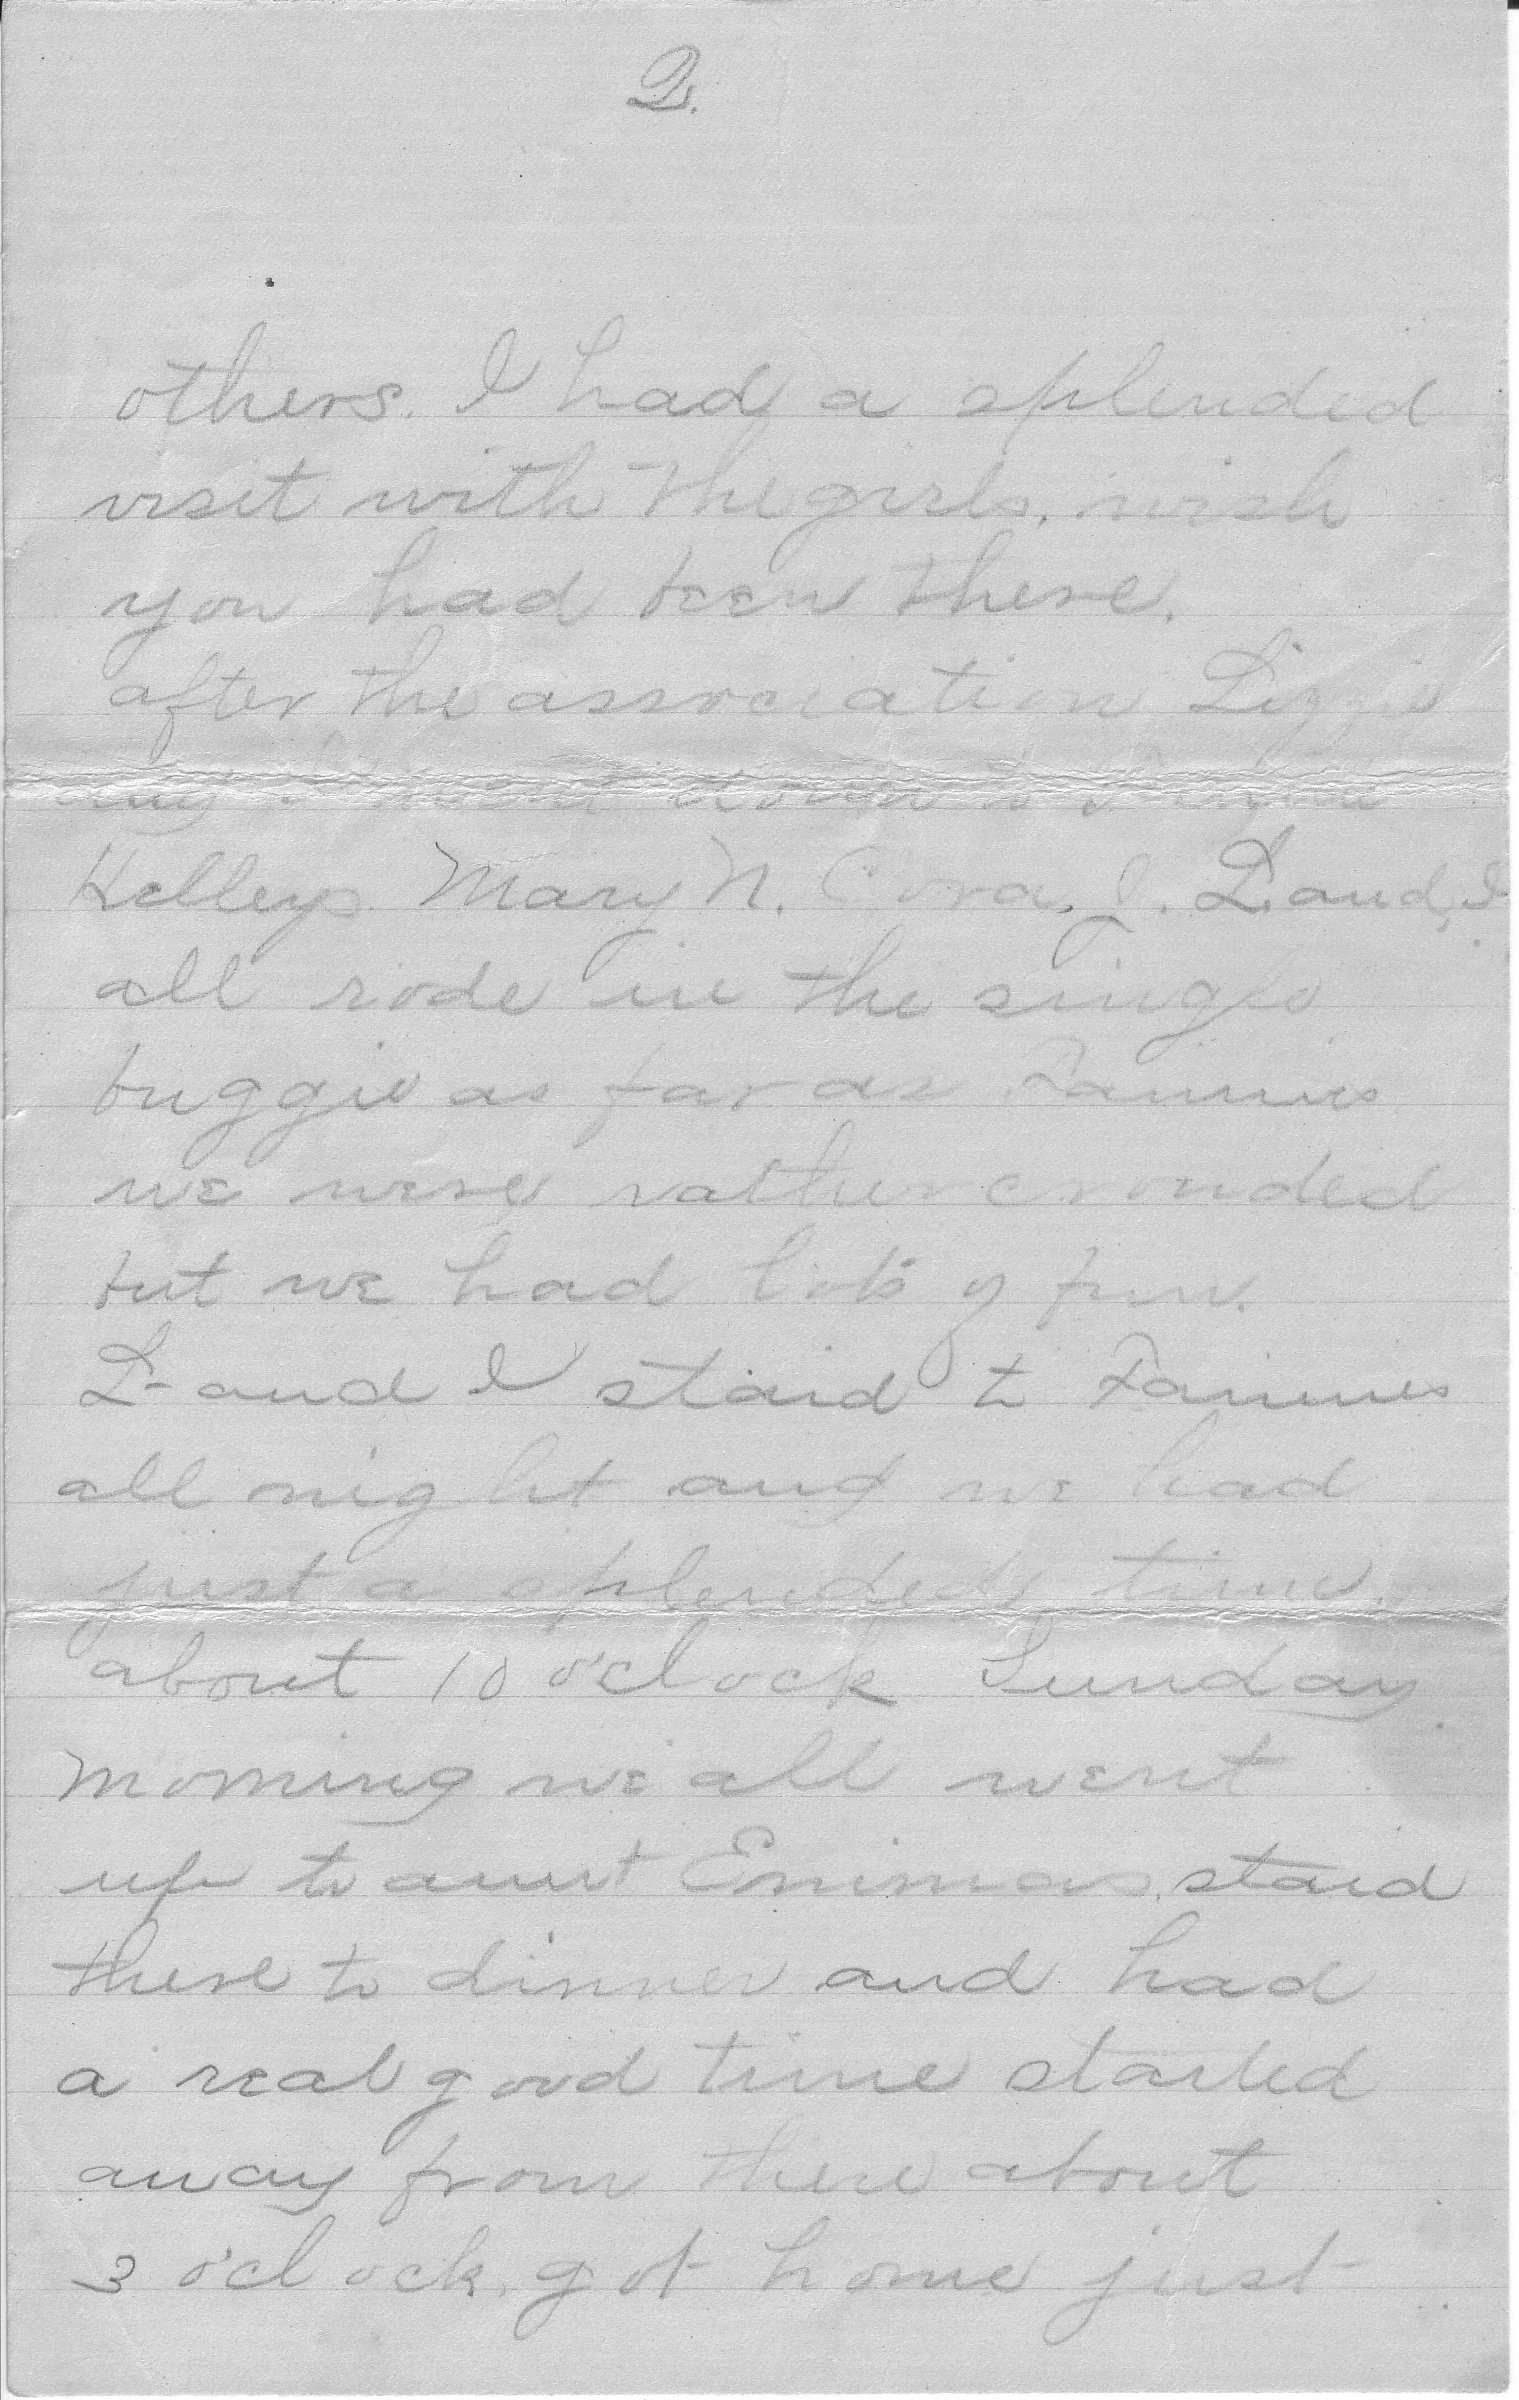 2.
others. I had a splended
visit with the girls, wish
you had been there.
after the association Lizzie
and I went down to Fannie
Kelleys Mary N. Cora, J. L. and I
all rode in the single
buggie as far as Fannies
we were rather crouded
but we had lots of fun.
L- and I staid to Fannies
all night and we had
just a splended time.
about 10 o'clock Sunday
morning we all went
up to aunt Emmas, staid
there to dinner and had
a real good time started
away from there about
3 o'clock, got home just